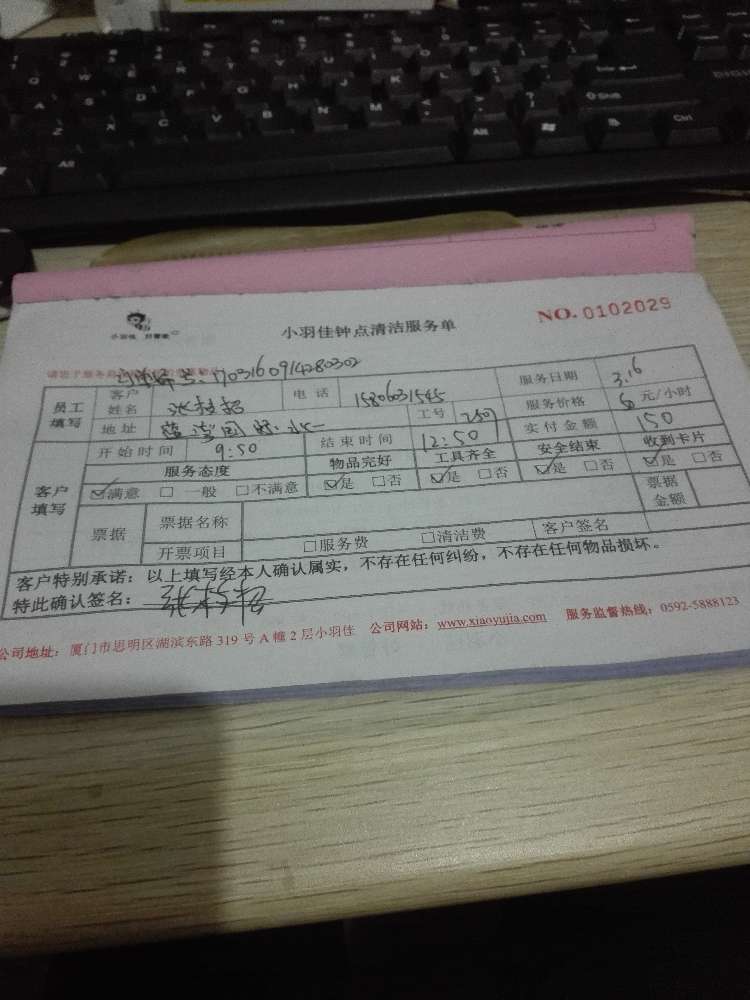 Q W E R T
A S D F G H
Z X C V B N M
Alt
Alt
小羽佳 好管家
小羽佳钟点清洁服务单
NO. 0102029
1703160914280302
员工填写 客户姓名 电话 15806031545 服务日期 3.16
地址 工号 250 服务价格 元/小时
开始时间 9:50 结束时间 12:50 实付金额 150
客户填写 服务态度 物品完好 工具齐全 安全结束 收到卡片
☑满意 □一般 □不满意 ☑是 □否 ☑是 □否 ☑是 □否 ☑是 □否
票据 票据名称 票据金额
开票项目 □服务费 □清洁费 客户签名
客户特别承诺：以上填写经本人确认属实，不存在任何纠纷，不存在任何物品损坏。
特此确认签名：
公司地址：厦门市思明区湖滨东路 319 号 A 幢 2 层小羽佳 公司网站：www.xiaoyujia.com 服务监督热线：0592-5888123